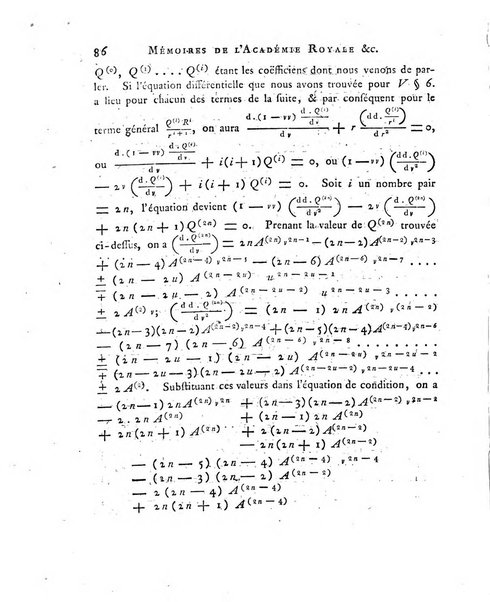 86 MÉMOIRES DE L'ACADÉMIE ROYALE &c.
Q^(0), Q^(1) .... Q^(i) étant les coëfficiens dont nous venons de par-
ler. Si l'équation différentielle que nous avons trouvée pour V § 6.
a lieu pour chacun des termes de la suite, & par conséquent pour le
terme général Q^(i) R^i / r^(i+1), on aura d.(1 — vv) (d.Q^(i)/dv) / dv + r (dd.Q^(i)/r^(i+1) / dr^2) = 0,
ou d.(1 — vv) (d.Q^(i)/dv) / dv + i(i + 1) Q^(i) = 0, ou (1 — vv) (dd.Q^(i)/dv^2)
— 2v (d.Q^(i)/dv) + i(i + 1) Q^(i) = 0. Soit i un nombre pair
= 2n, l'équation devient (1 — vv) (dd.Q^(2n)/dv^2) — 2v (d.Q^(2n)/dv)
+ 2n (2n + 1) Q^(2n) = 0. Prenant la valeur de Q^(2n) trouvée
ci-dessus, on a (d.Q^(2n)/dv) = 2n A^(2n) v^2n—1 — (2n — 2) A^(2n—2) v^2n—3
+ (2n — 4) A^(2n—4) v^2n—5 — (2n — 6) A^(2n—6) v^2n—7 ....
± (2n — 2u) A^(2n—2u) v^2n—2u—1
∓ (2n — 2u — 2) A^(2n—2u—2) v^2n—2u—3 ....
± 2 A^(2) v; (dd.Q^(2n)/dv^2) = (2n — 1) 2n A^(2n) v^2n—2
— (2n — 3) (2n — 2) A^(2n—2) v^2n—4 + (2n — 5) (2n — 4) A^(2n—4) v^2n—6
— (2n — 7) (2n — 6) A^(2n—6) v^2n—8 ....
± (2n — 2u — 1) (2n — 2u) A^(2n—2u) v^2n—2u—2
∓ (2n — 2u — 3) (2n — 2u — 2) A^(2n—2u—2) v^2n—2u—4 ....
± 2 A^(2). Substituant ces valeurs dans l'équation de condition, on a
— (2n — 1) 2n A^(2n) v^2n + (2n — 3) (2n — 2) A^(2n—2) v^2n—2
— 2. 2n A^(2n) + (2n — 1) 2n A^(2n)
+ 2n (2n + 1) A^(2n) + 2 (2n — 2) A^(2n—2)
— 2n (2n + 1) A^(2n—2)
— (2n — 5) (2n — 4) A^(2n—4) v^2n—4
— (2n — 3) (2n — 2) A^(2n—2)
— 2 (2n — 4) A^(2n—4)
+ 2n (2n + 1) A^(2n—4)